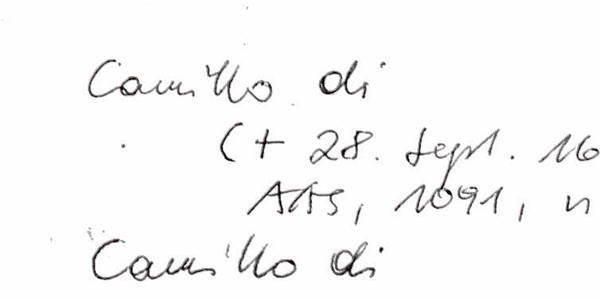 Camillo di
(+ 28. Sept. 16
AAS, 1091, n
Camillo di